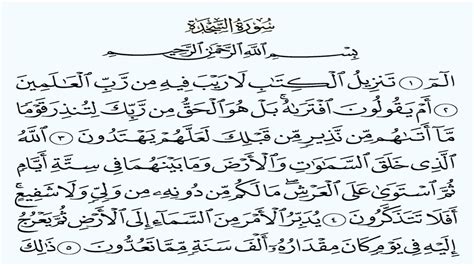 سُورَةُ السَّجْدَةِ
بِسْمِ ٱللَّهِ ٱلرَّحْمَٰنِ ٱلرَّحِيمِ
الٓمٓ ١ تَنزِيلُ ٱلْكِتَٰبِ لَا رَيْبَ فِيهِ مِن رَّبِّ ٱلْعَٰلَمِينَ
٢ أَمْ يَقُولُونَ ٱفْتَرَىٰهُ ۚ بَلْ هُوَ ٱلْحَقُّ مِن رَّبِّكَ لِتُنذِرَ قَوْمًا
مَّآ أَتَىٰهُم مِّن نَّذِيرٍ مِّن قَبْلِكَ لَعَلَّهُمْ يَهْتَدُونَ ٣ ٱللَّهُ
ٱلَّذِى خَلَقَ ٱلسَّمَٰوَٰتِ وَٱلْأَرْضَ وَمَا بَيْنَهُمَا فِى سِتَّةِ أَيَّامٍ
ثُمَّ ٱسْتَوَىٰ عَلَى ٱلْعَرْشِ ۖ مَا لَكُم مِّن دُونِهِۦ مِن وَلِىٍّ وَلَا شَفِيعٍ ۚ
أَفَلَا تَتَذَكَّرُونَ ٤ يُدَبِّرُ ٱلْأَمْرَ مِنَ ٱلسَّمَآءِ إِلَى ٱلْأَرْضِ ثُمَّ يَعْرُجُ
إِلَيْهِ فِى يَوْمٍ كَانَ مِقْدَارُهُۥٓ أَلْفَ سَنَةٍ مِّمَّا تَعُدُّونَ ٥ ذَٰلِكَ